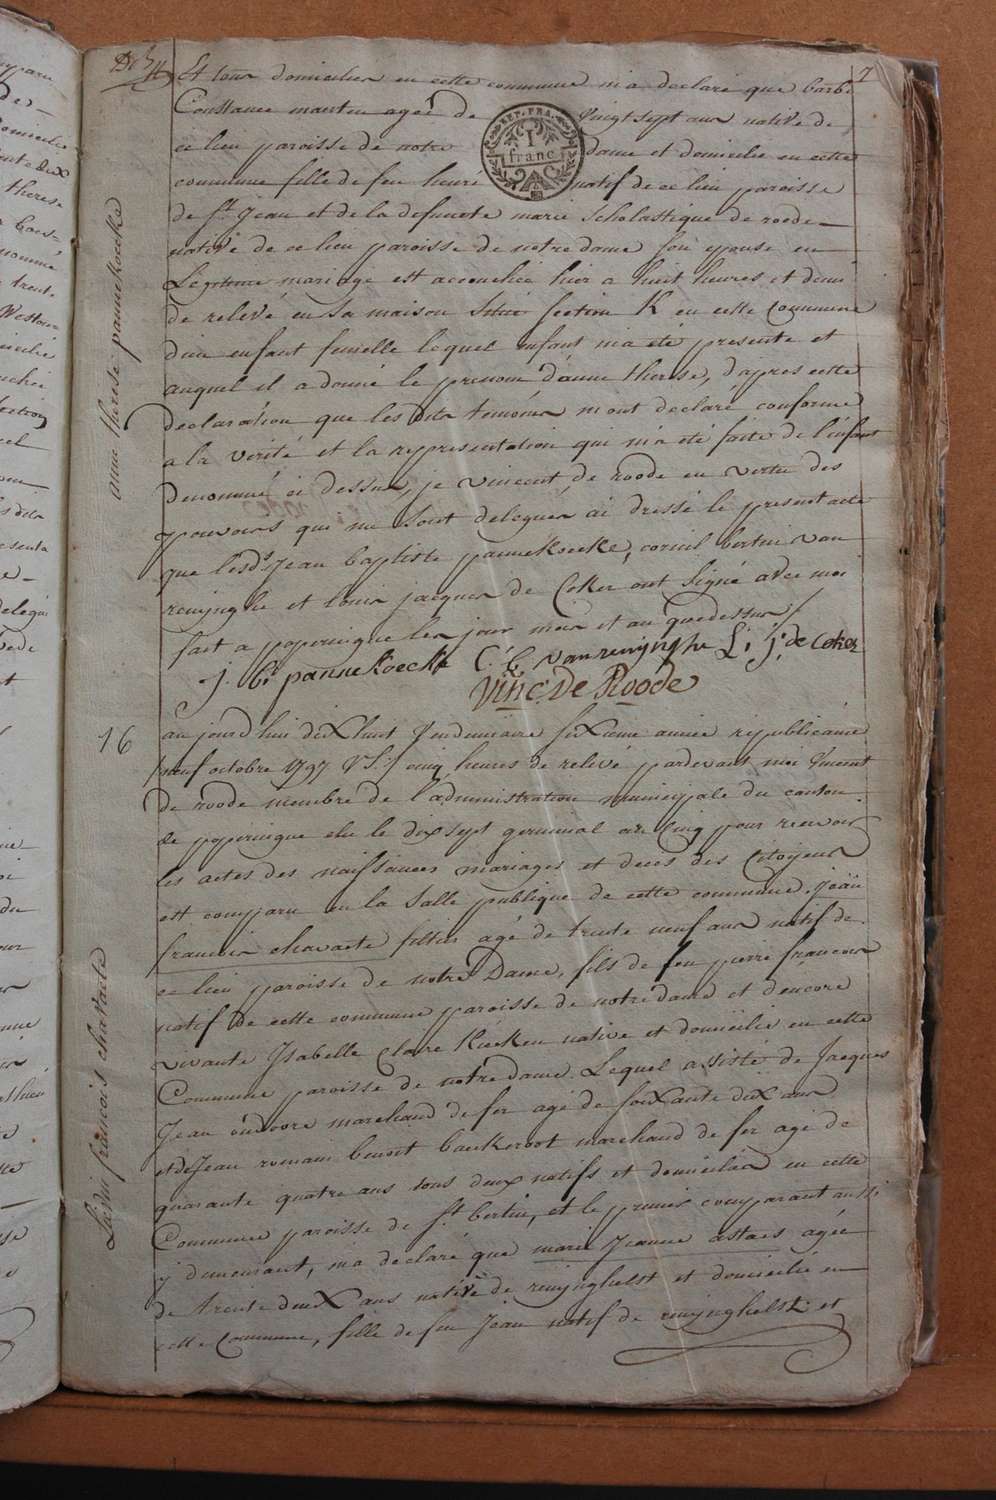 7
Et tous domiciliés en cette commune m'a declaré que barbe
Constance manten agée de vingt sept ans native de
ce lieu paroisse de notre dame et domicilié en cette
commune fille de feu henri natif de ce lieu paroisse
de St Jean et de la defuncte marie scholastique de roode
native de ce lieu paroisse de notre dame son epouse en
Legitime mariage est accouchée hier a huit heures et demi
de relevé en sa maison situé section K en cette commune
d'un enfant femelle lequel enfant m'a été presenté et
auquel il a donné le prenom d'anne therese, d'apres cette
declaration que les dits temoins m'ont declaré conforme
a la verité et la representation qui m'a été faite de l'enfant
denommé ci dessus, je vincent de roode en vertu des
pouvoirs qui me sont delegués ai dressé le present acte
que lesds Jean baptiste pannekoecke, corneil bertin van
renynghe et louis jacques de Coker ont signé avec moi
fait a poperingue les jour mois et an que dessus /
j. bt pannekoecke C. b. vanrenynghe L. j. de Coker
Vinc. De Roode
anne therese pannekoecke
16
aujourd'hui dix huit vendemiaire sixieme année republicaine
/neuf octobre 1797 V.S./ cinq heures de relevé pardevant moi Vincent
de roode membre de l'administration municipale du canton
de poperingue elu le dix sept germinal an cinq pour recevoir
les actes des naissances mariages et deces des Citoyens
est comparu en la salle publique de cette commune. jean
francois chavaete age de trente neuf ans natif de
ce lieu paroisse de notre Dame, fils de feu pierre francois
natif de cette commune paroisse de notre dame et d'encore
vivante Isabelle Claire Kieken native et domicilie en cette
Commune paroisse de notre dame. Lequel assisté de Jacques
Jean marchand de fer agé de soixante dix ans
et de Jean romain benoit baekeroot marchand de fer agé de
quarante quatre ans tous deux natifs et domiciliés en cette
Commune paroisse de St bertin, et le premier comparant aussi
y demeurant, m'a declaré que marie Jeanne astaes agée
de trente deux ans native de renynghelst et domicilié en
cette Commune, fille de feu Jean natif de renynghelst et
francois chavaete